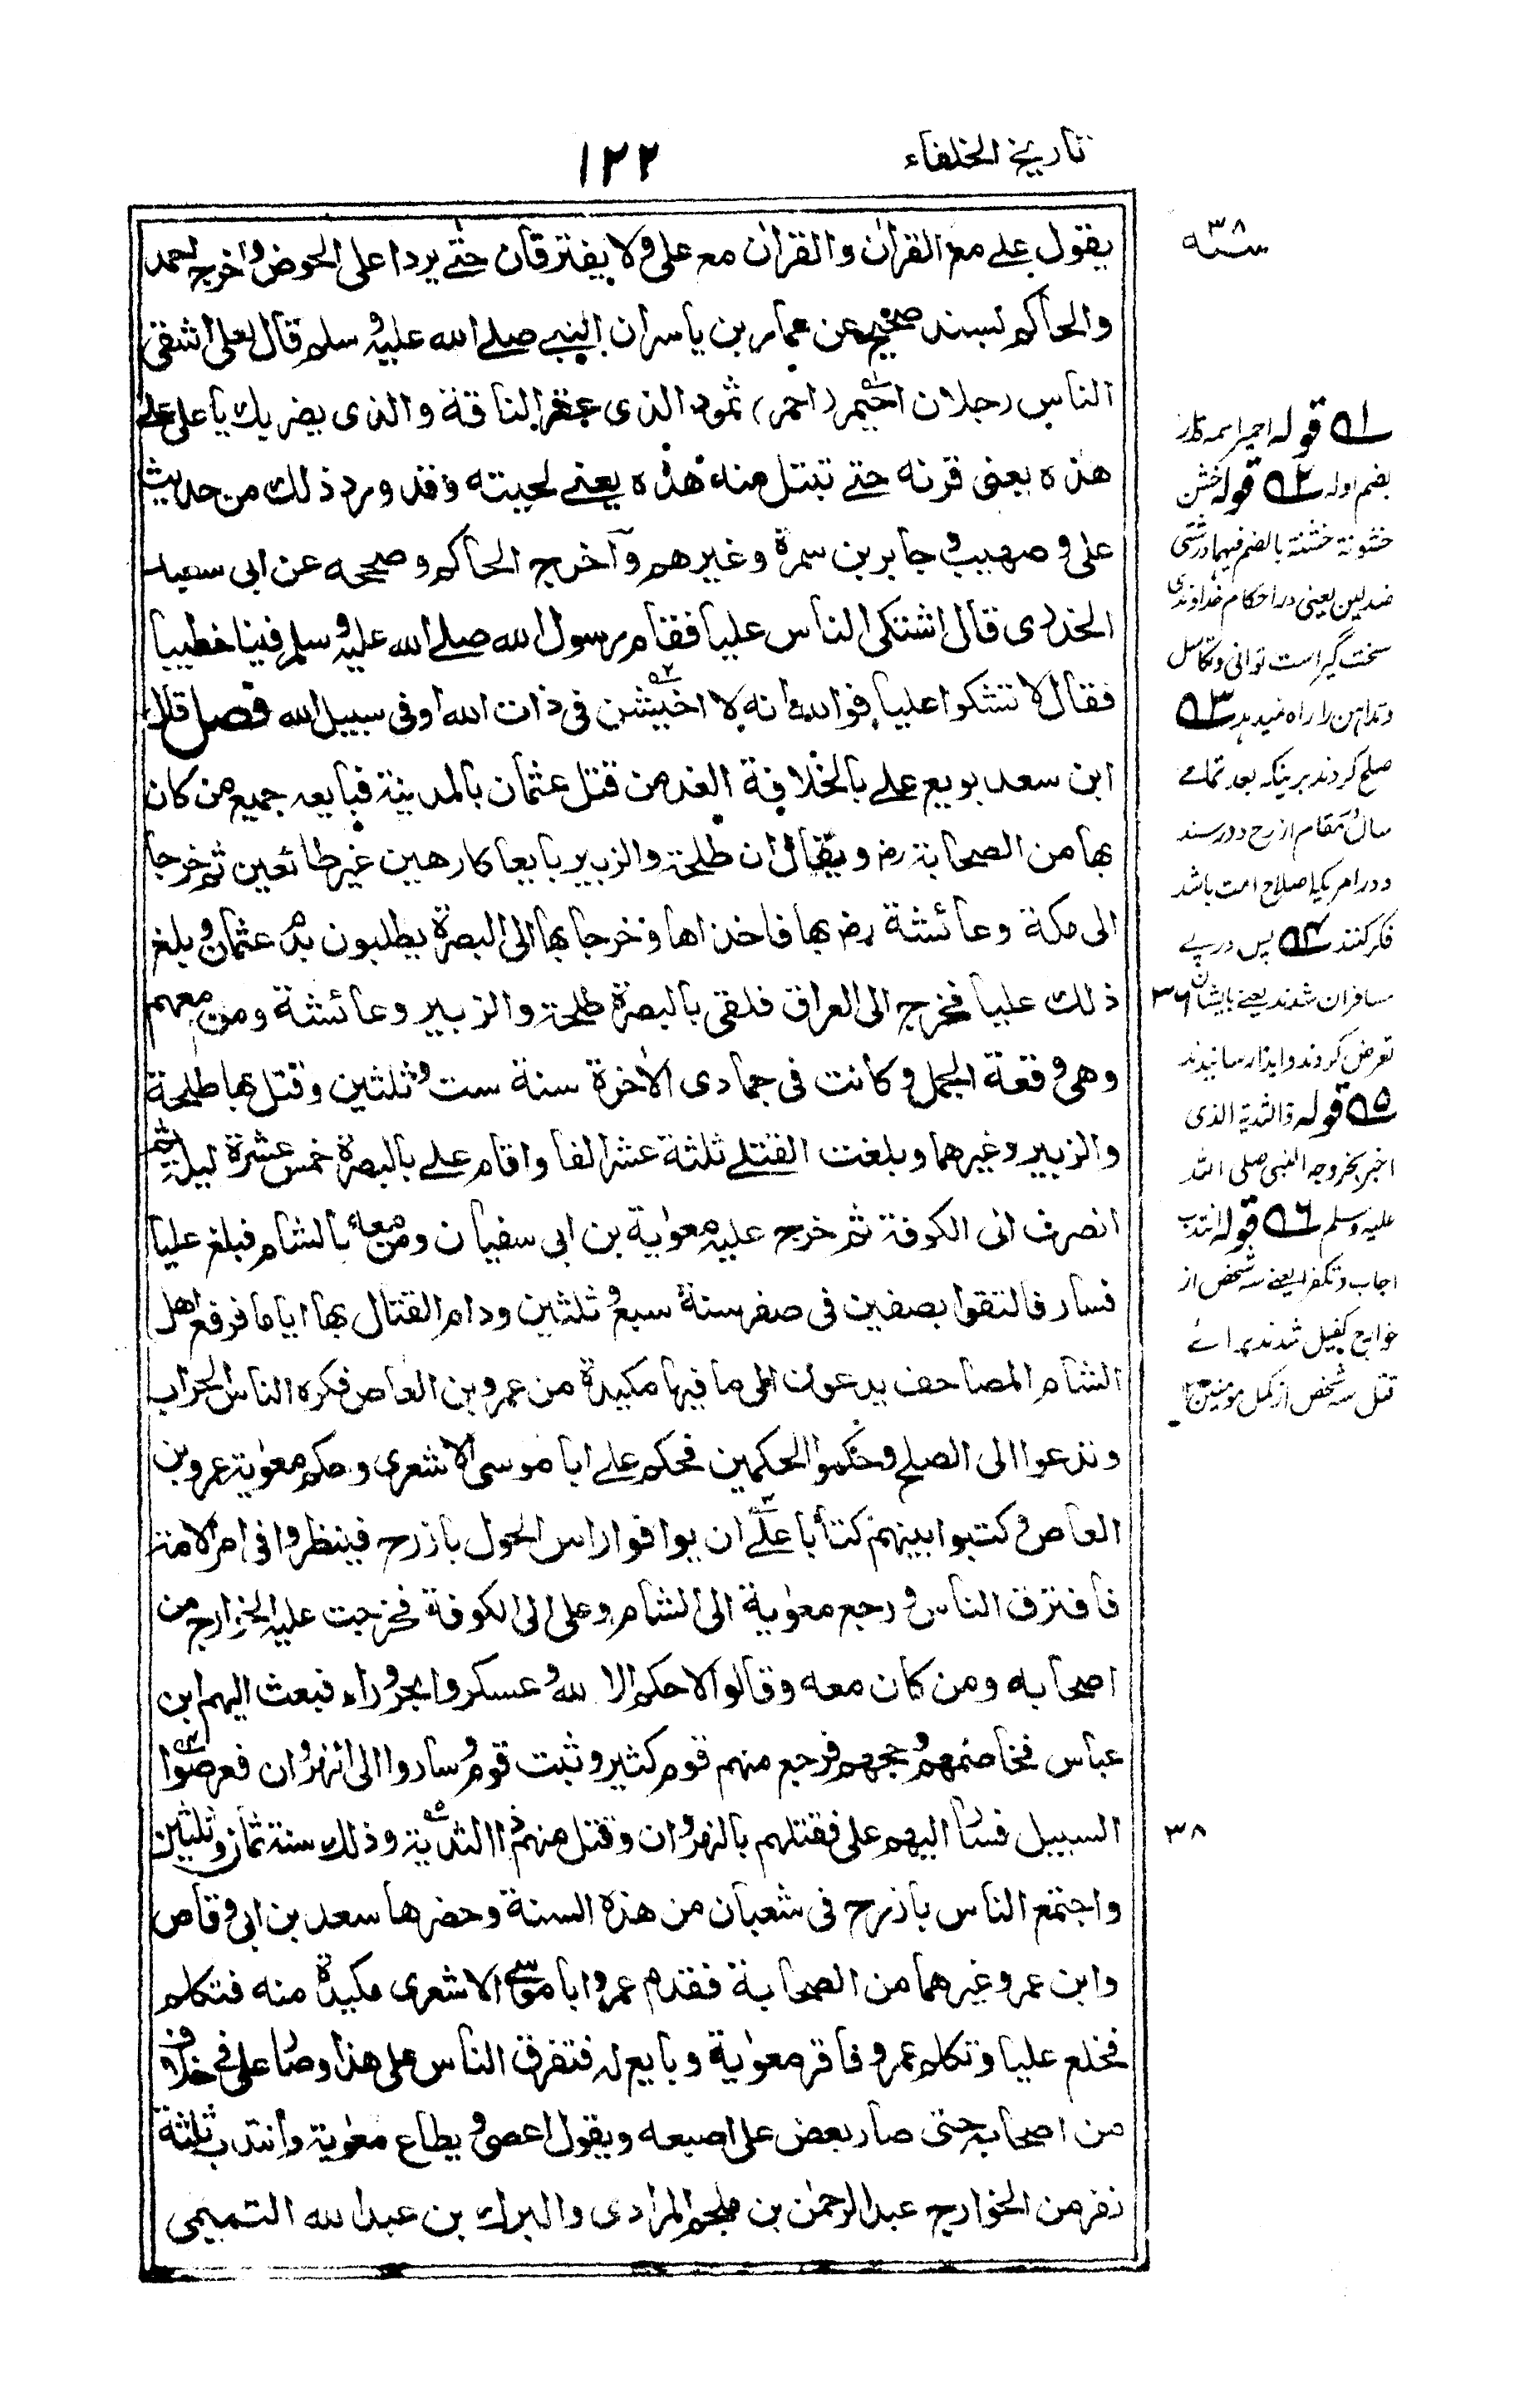 تاريخ الخلفاء
١٢٢
يقول علے مع القرأن والقرأن مع على ولا يفترقان حتے يردا على الحوض واخرج احمد
والحاكم بسند صحيح عن عمار بن ياسر ان النبے صلے الله عليه وسلم قال لعلى اشقى
الناس رجلان احيمر (احمر) ثمود الذى عقر الناقة والذى يضربك يا على علے
هذه يعنى قرنه حتے تبتل منه هذه يعنے لحيته وقد ورد ذلك من حديث
على وصهيب وجابر بن سمرة وغيرهم وآخرج الحاكم وصححه عن ابى سعيد
الخدرى قال اشتكى الناس عليا فقام رسول الله صلے الله عليه وسلم فينا خطيبا
فقال لا تشكوا عليا فوالله انه لا اخيشن فى ذات الله او فى سبيل الله فصل قال
ابن سعد بويع علے بالخلافة الغد من قتل عثمان بالمدينة فبايعه جميع من كان
بها من الصحابة رض ويقال ان طلحة والزبير بايعا كارهين غير طائعين ثم خرجا
الى مكة وعائشة رض بها فاخذاها وخرجا بها الى البصرة يطلبون بدم عثمان وبلغ
ذلك عليا فخرج الى العراق فلقى بالبصرة طلحة والزبير وعائشة ومن معهم
وهى وقعة الجمل وكانت فى جمادى الأخرة سنة ست وثلثين وقتل بها طلحة
والزبير وغيرهما وبلغت القتلے ثلثة عشر الفا واقام علے بالبصرة خمس عشرة ليلة ثم
انصرف الى الكوفة ثم خرج عليه معوٰية بن ابى سفيان ومن معه بالشام فبلغ عليا
فسار فالتقوا بصفين فى صفر سنة سبع وثلثين ودام القتال بها اياما فرفع اهل
الشام المصاحف يدعون الى ما فيها مكيدة من عمرو بن العاص فكره الناس الحراب
وتدعوا الى الصلح وحكموا الحكمين فحكم علے ابا موسى الاشعرى وحكم معوٰية عمرو بن
العاص وكتبوا بينهم كتابا علے ان يوافوا راس الحول باذرح فينظروا فى امر الامة
فافترق الناس ورجع معوٰية الى الشام وعلى الى الكوفة فخرجت عليه الخوارج من
اصحابه ومن كان معه وقالوا لا حكم الا لله وعسكروا بحروراء فبعث اليهم ابن
عباس فخاصمهم وحجهم فرجع منهم قوم كثير وثبت قوم وساروا الى النهروان فعرضوا
السبيل فسار اليهم على فقتلهم بالنهروان وقتل منهم ذا الثدية وذلك سنة ثمان وثلثين
واجتمع الناس باذرح فى شعبان من هذه السنة وحضرها سعد بن ابى وقاص
وابن عمر وغيرهما من الصحابة فقدم عمرو ابا موسے الاشعرى مكيدة منه فتكلم
فخلع عليا وتكلم عمرو فاقر معوٰية وبايع له فتفرق الناس على هذا وصار على فے خلاف
من اصحابه حتى صار يعض على اصبعه ويقول اعصى ويطاع معوٰية وانتدب ثلثة
نفر من الخوارج عبد الرحمٰن بن ملجم المرادى والبرك بن عبد الله التميمى
سنه ٣٨
٥١ قوله احيمر اسمه قدار
بضم اوله ٥٢ قوله اخشن
خشونة خشنة بالضم فيهما درشتى
ضد لين يعنى در احكام خداوندى
سخت گير است توانى وتكاسل
وتداہن را راه نميدہد ٥٣
صلح كردند برينكه بعد تمامے
سال بمقام اذرح در رسند
ودر امريكه اصلاح امت باشد
فكر كنند ٥٤ پس درپے
مسافران شدند يعنے بايشان
تعرض كردند وايذا رسانيدند
٥٥ قوله ذا الثدية الذى
اخبر بخروجه النبى صلى الله
عليه وسلم ٥٦ قوله انتدب
اجاب وتكفل يعنے سه شخص از
خوارج كفيل شدند برائے
قتل سه شخص از كمل مومنين ١٢
٣٦
٣٨